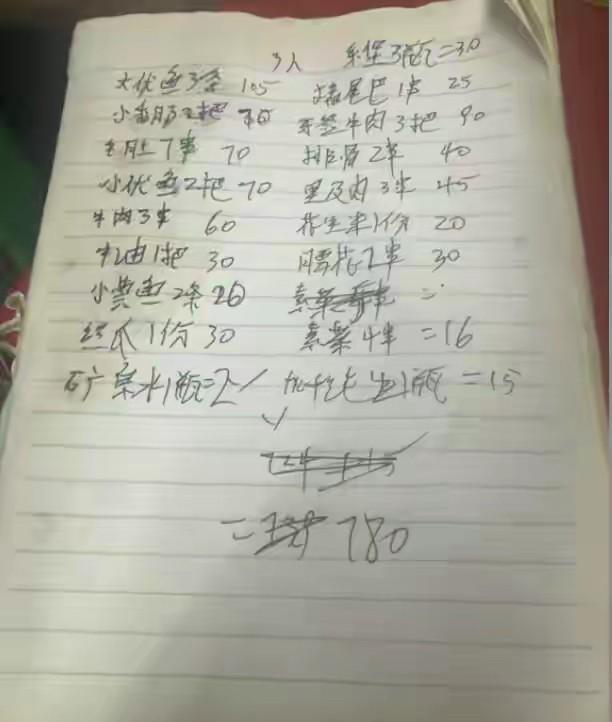 3人 3瓶=30
大优鱼3条 105 猪尾巴1串 25
小香肠2把 牙签牛肉3把 90
毛肚7串 70 排骨2串 40
小优鱼2把 70 里及肉3串 45
牛肉3串 60 花生米1份 20
牛油1把 30 腰花2串 30
小黄鱼2条 20 素菜 =
丝瓜1份 30 素菜4串 =16
矿泉水1瓶=2 1瓶 =15
= 780